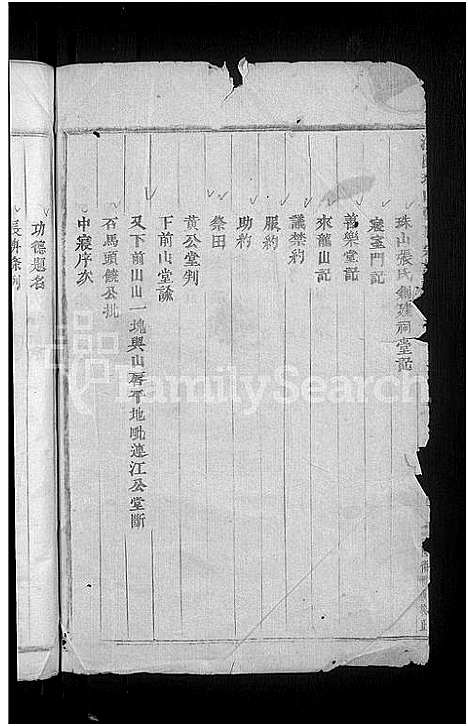 珠山張氏創建祠堂記
寢室門記
善樂堂記
來龍山記
議禁約
服約
助約
祭田
黄公堂判
下前山堂諭
又下前山山一塊與山唇平地毗連江公堂斷
石馬頭饒公批
中寢序次
功德題名
FamilySearch